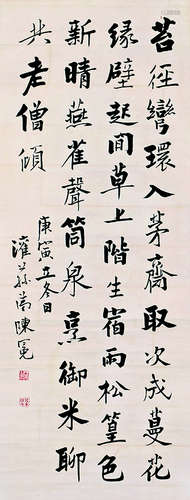 苔徑彎環入茅齋取次成蔓花
緣壁起閒草上階生宿雨松篁色
新晴燕雀聲筒泉烹御米聊
共老僧傾
庚寅立冬日
灌蓀葛陳冕